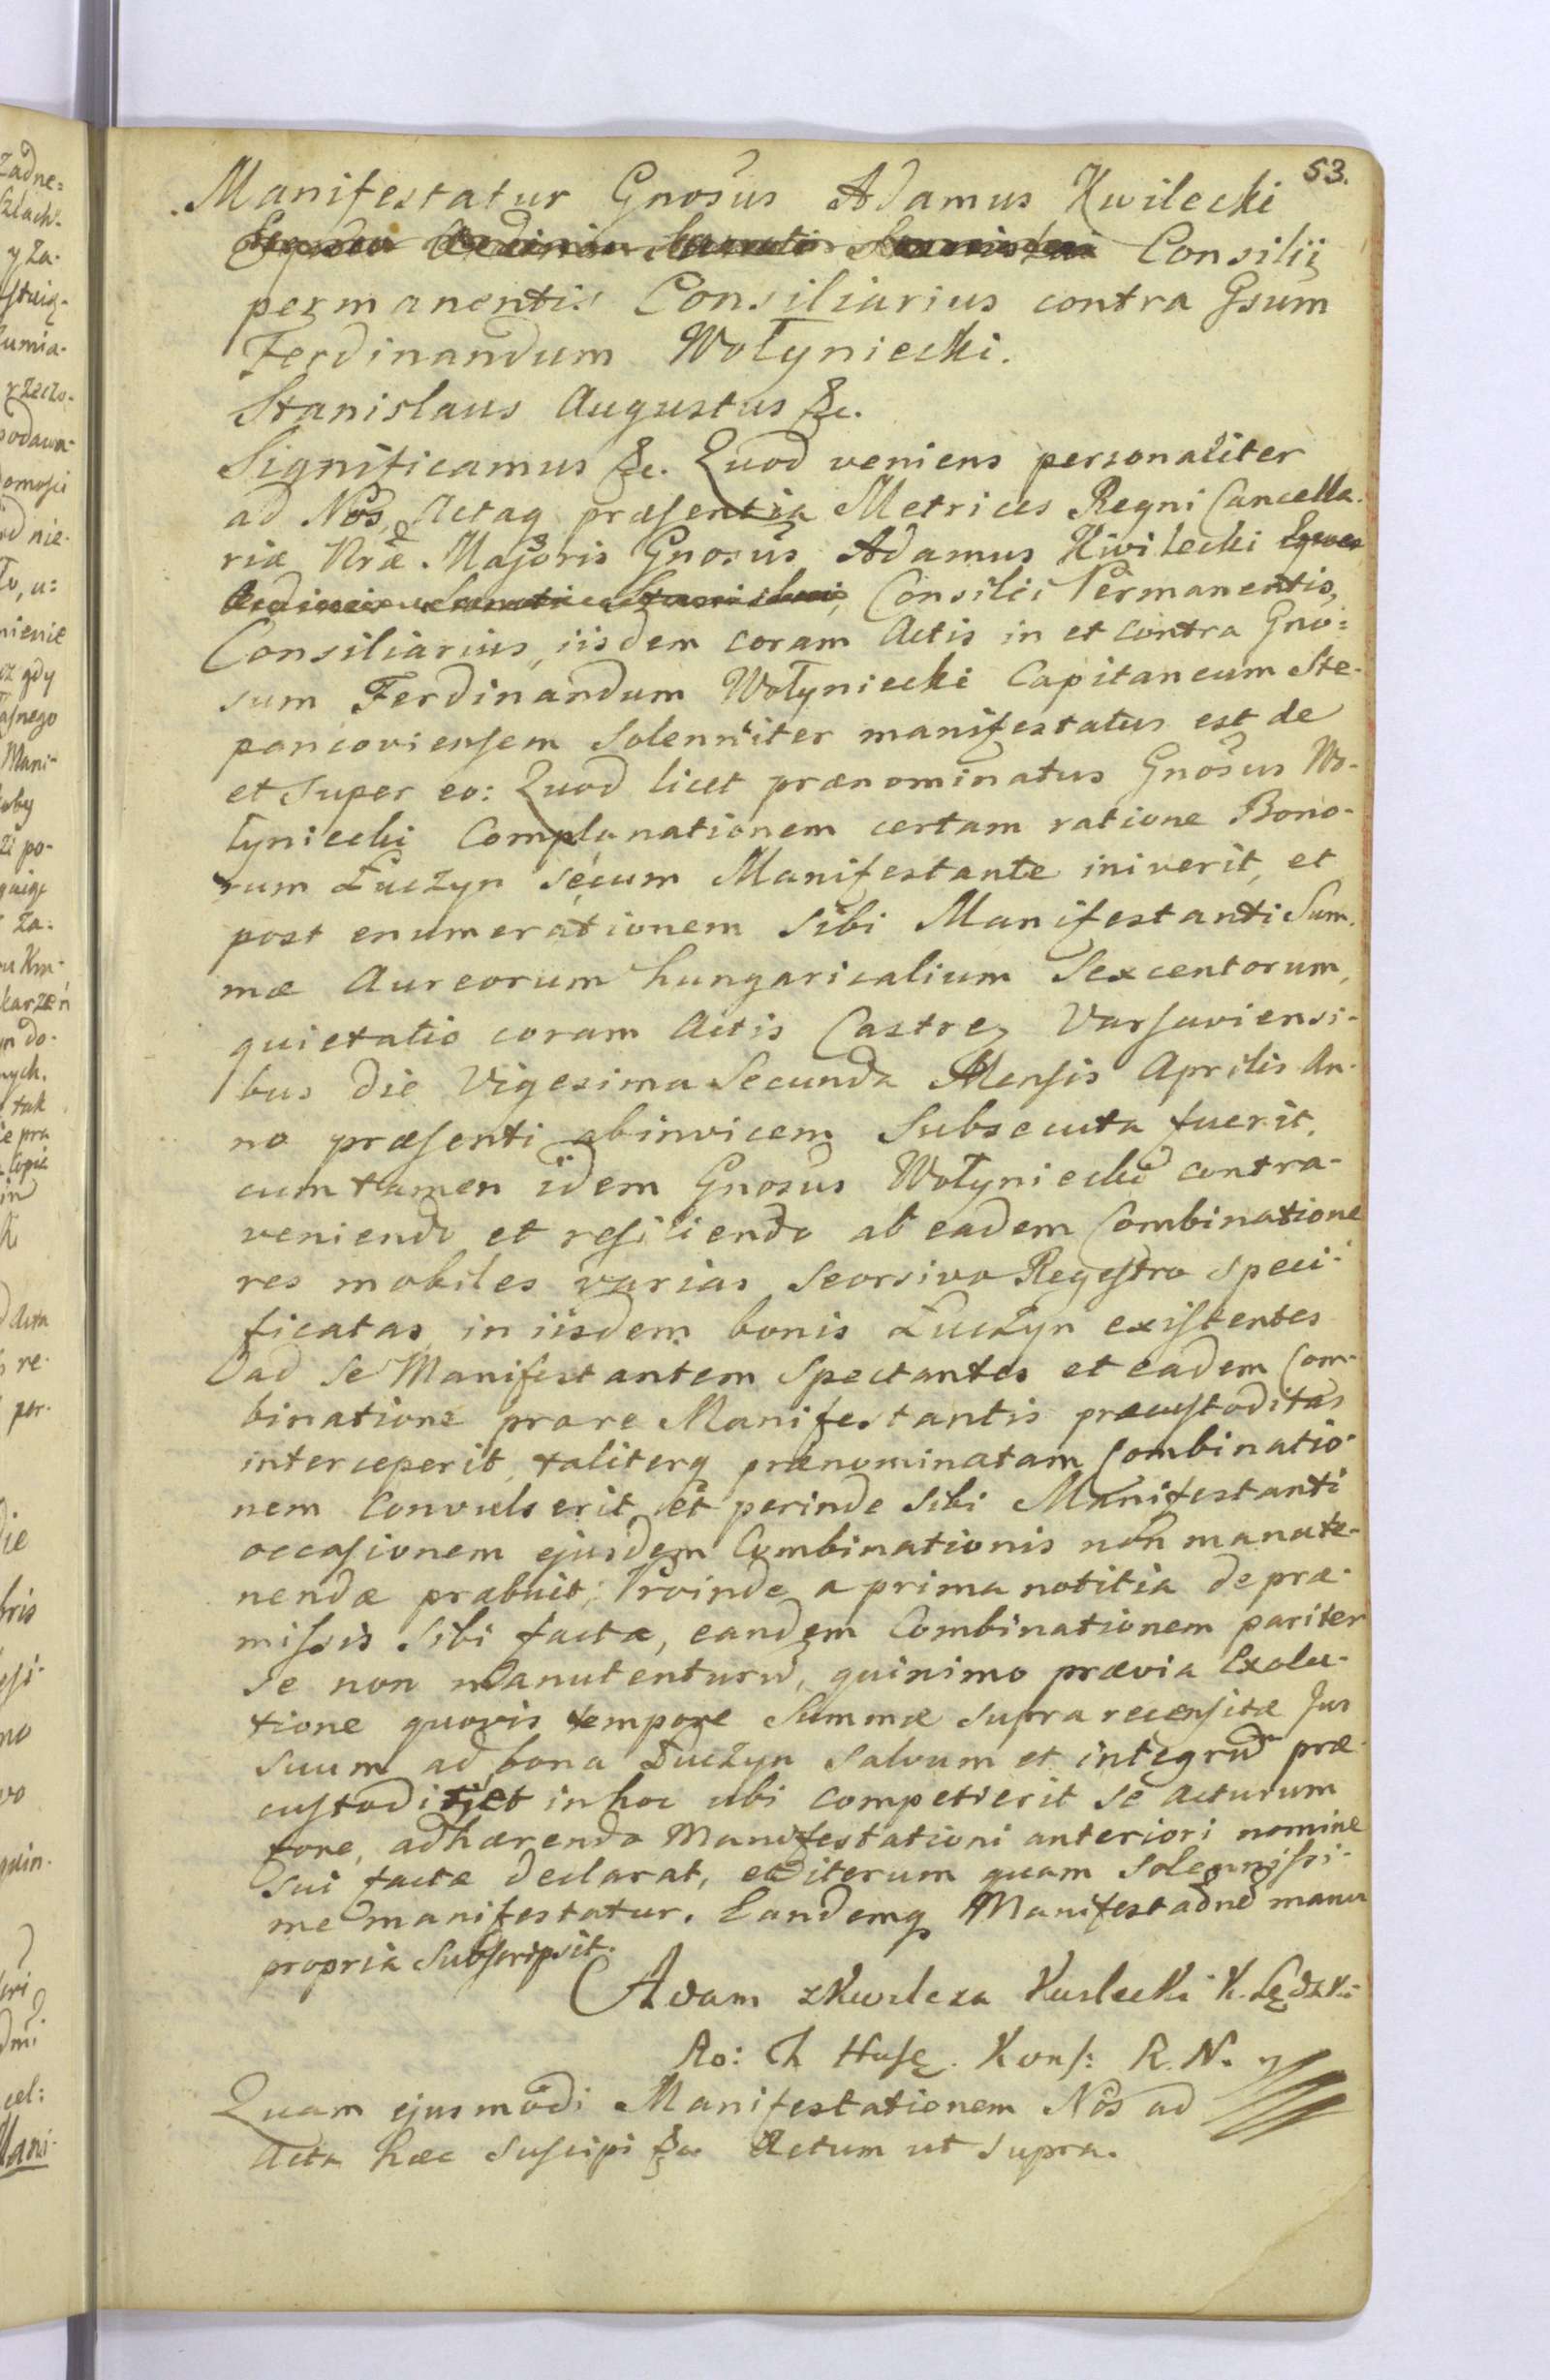 53.
Manifestatur Gnosus Adamus Kwilecki
Consilij
permanentis Consiliarius contra Gsum
Ferdinandum Wołyniecki.
Stanislaus Augustus &c.
Significamus &c. Quod veniens personaliter
ad Nos, Actaq præsentia Metrices Regni Cancella-
riæ Nræ Majoris Gnosus Adamus Kwilecki Eques
Ordinis Sancti Stanislai, Consilii Permanentis,
Consiliarius, iisdem coram Actis in et contra Gno=
sum Ferdinandum Wołyniecki Capitaneum Ste-
pancoviensem Solenniter manifestatus est de
et super eo: Quod licet prænominatus Gnosus Wo-
łyniecki Complanationem certam ratione Bono-
rum Łuczyn secum Manifestante iniverit, et
post enumerationem sibi Manifestanti Sum-
mæ Aureorum hungaricalium Sexcentorum,
quietatio coram Actis Castren Varsaviensi-
bus die Vigesima Secunda Mensis Aprilis An-
no præsenti abinvicem Subsecuta fuerit,
cum tamen idem Gnosus Wołyniecki contra-
veniendo et resiliendo ab eadem Combinatione
res mobiles varias seorsivo Regestro speci-
ficatas in iisdem bonis Łuczyn existentes
ad se Manifestantem Spectantes et eadem Com-
binatione pro re Manifestantis præcustoditas
interceperit, taliterq prænominatam Combinatio-
nem Convulserit et perinde sibi Manifestanti
occasionem ejusdem Combinationis non manute-
nendæ præbuit; Proinde a prima notitia de præ-
missis sibi facta, eandem Combinationem pariter
se non manutenturū, quinimo prævia Exolu-
tione quovis tempore Summæ supra recensitæ Jus
suum ad bona Łuczyn salvum et integrū præ-
custodit et in hoc ubi competierit se acturum
fore, adhærendo Manifestationi anteriori nomine
sui factæ declarat, et iterum quam solennissi-
me manifestatur. Eandemq Manifestaōnē manu
propria Subscripsit.
Adam z Kwilcza Kwilecki K. Lędzki
Ro: Konf: R. N.
Quam ejusmodi Manifestationem Nos ad
Acta hæc suscipi &c. Actum ut supra.